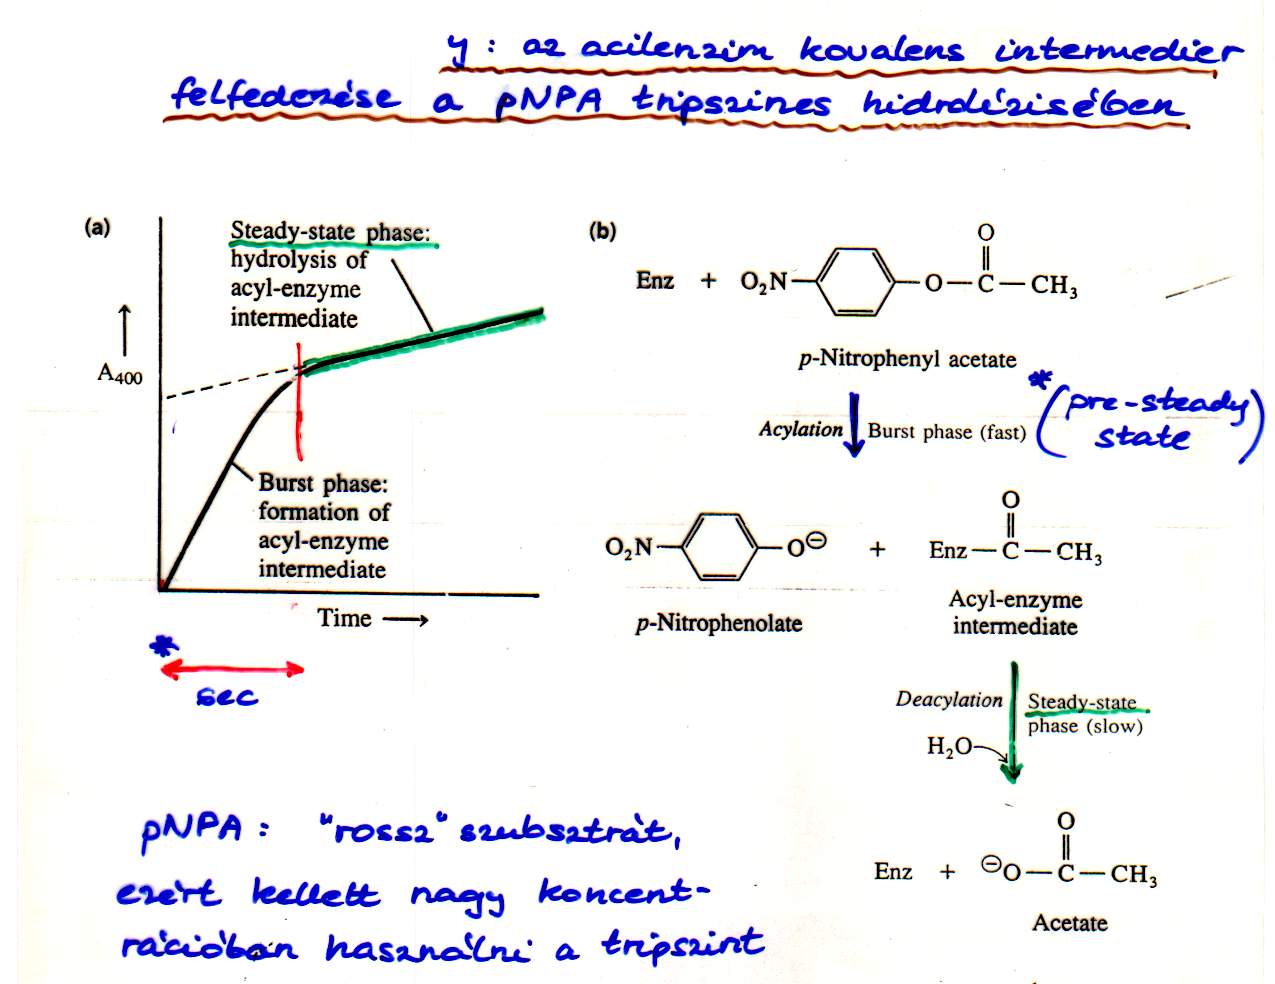 y: az acilenzim kovalens intermedier
felfedezése a pNPA tripszines hidrolízisében
(a)
Steady-state phase:
hydrolysis of
acyl-enzyme
intermediate
A₄₀₀
Burst phase:
formation of
acyl-enzyme
intermediate
Time
*
sec
(b)
Enz + O₂N O C CH₃
O
p-Nitrophenyl acetate
Acylation Burst phase (fast)
* (pre-steady
state)
O₂N O⊖ + Enz C CH₃
O
p-Nitrophenolate
Acyl-enzyme
intermediate
Deacylation Steady-state
phase (slow)
H₂O
O
Enz + ⊖O C CH₃
Acetate
pNPA: "rossz" szubsztrát,
ezért kellett nagy koncent-
rációban használni a tripszint